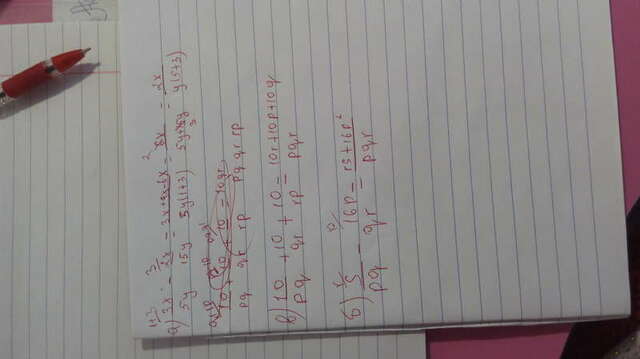 a) 3x/5y - 2x/15y = 3x+9x-6x/5y(1+3) = 6x/5y+15y = 2x/y(5+3)
10/pq + 10/qr + 10/rp = 10qr/pq qr rp
в) 10/pq + 10/qr + 10/rp = 10r+10p+10q/pqr
б) 5/pq - 16p/qr = r5+16p²/pqr